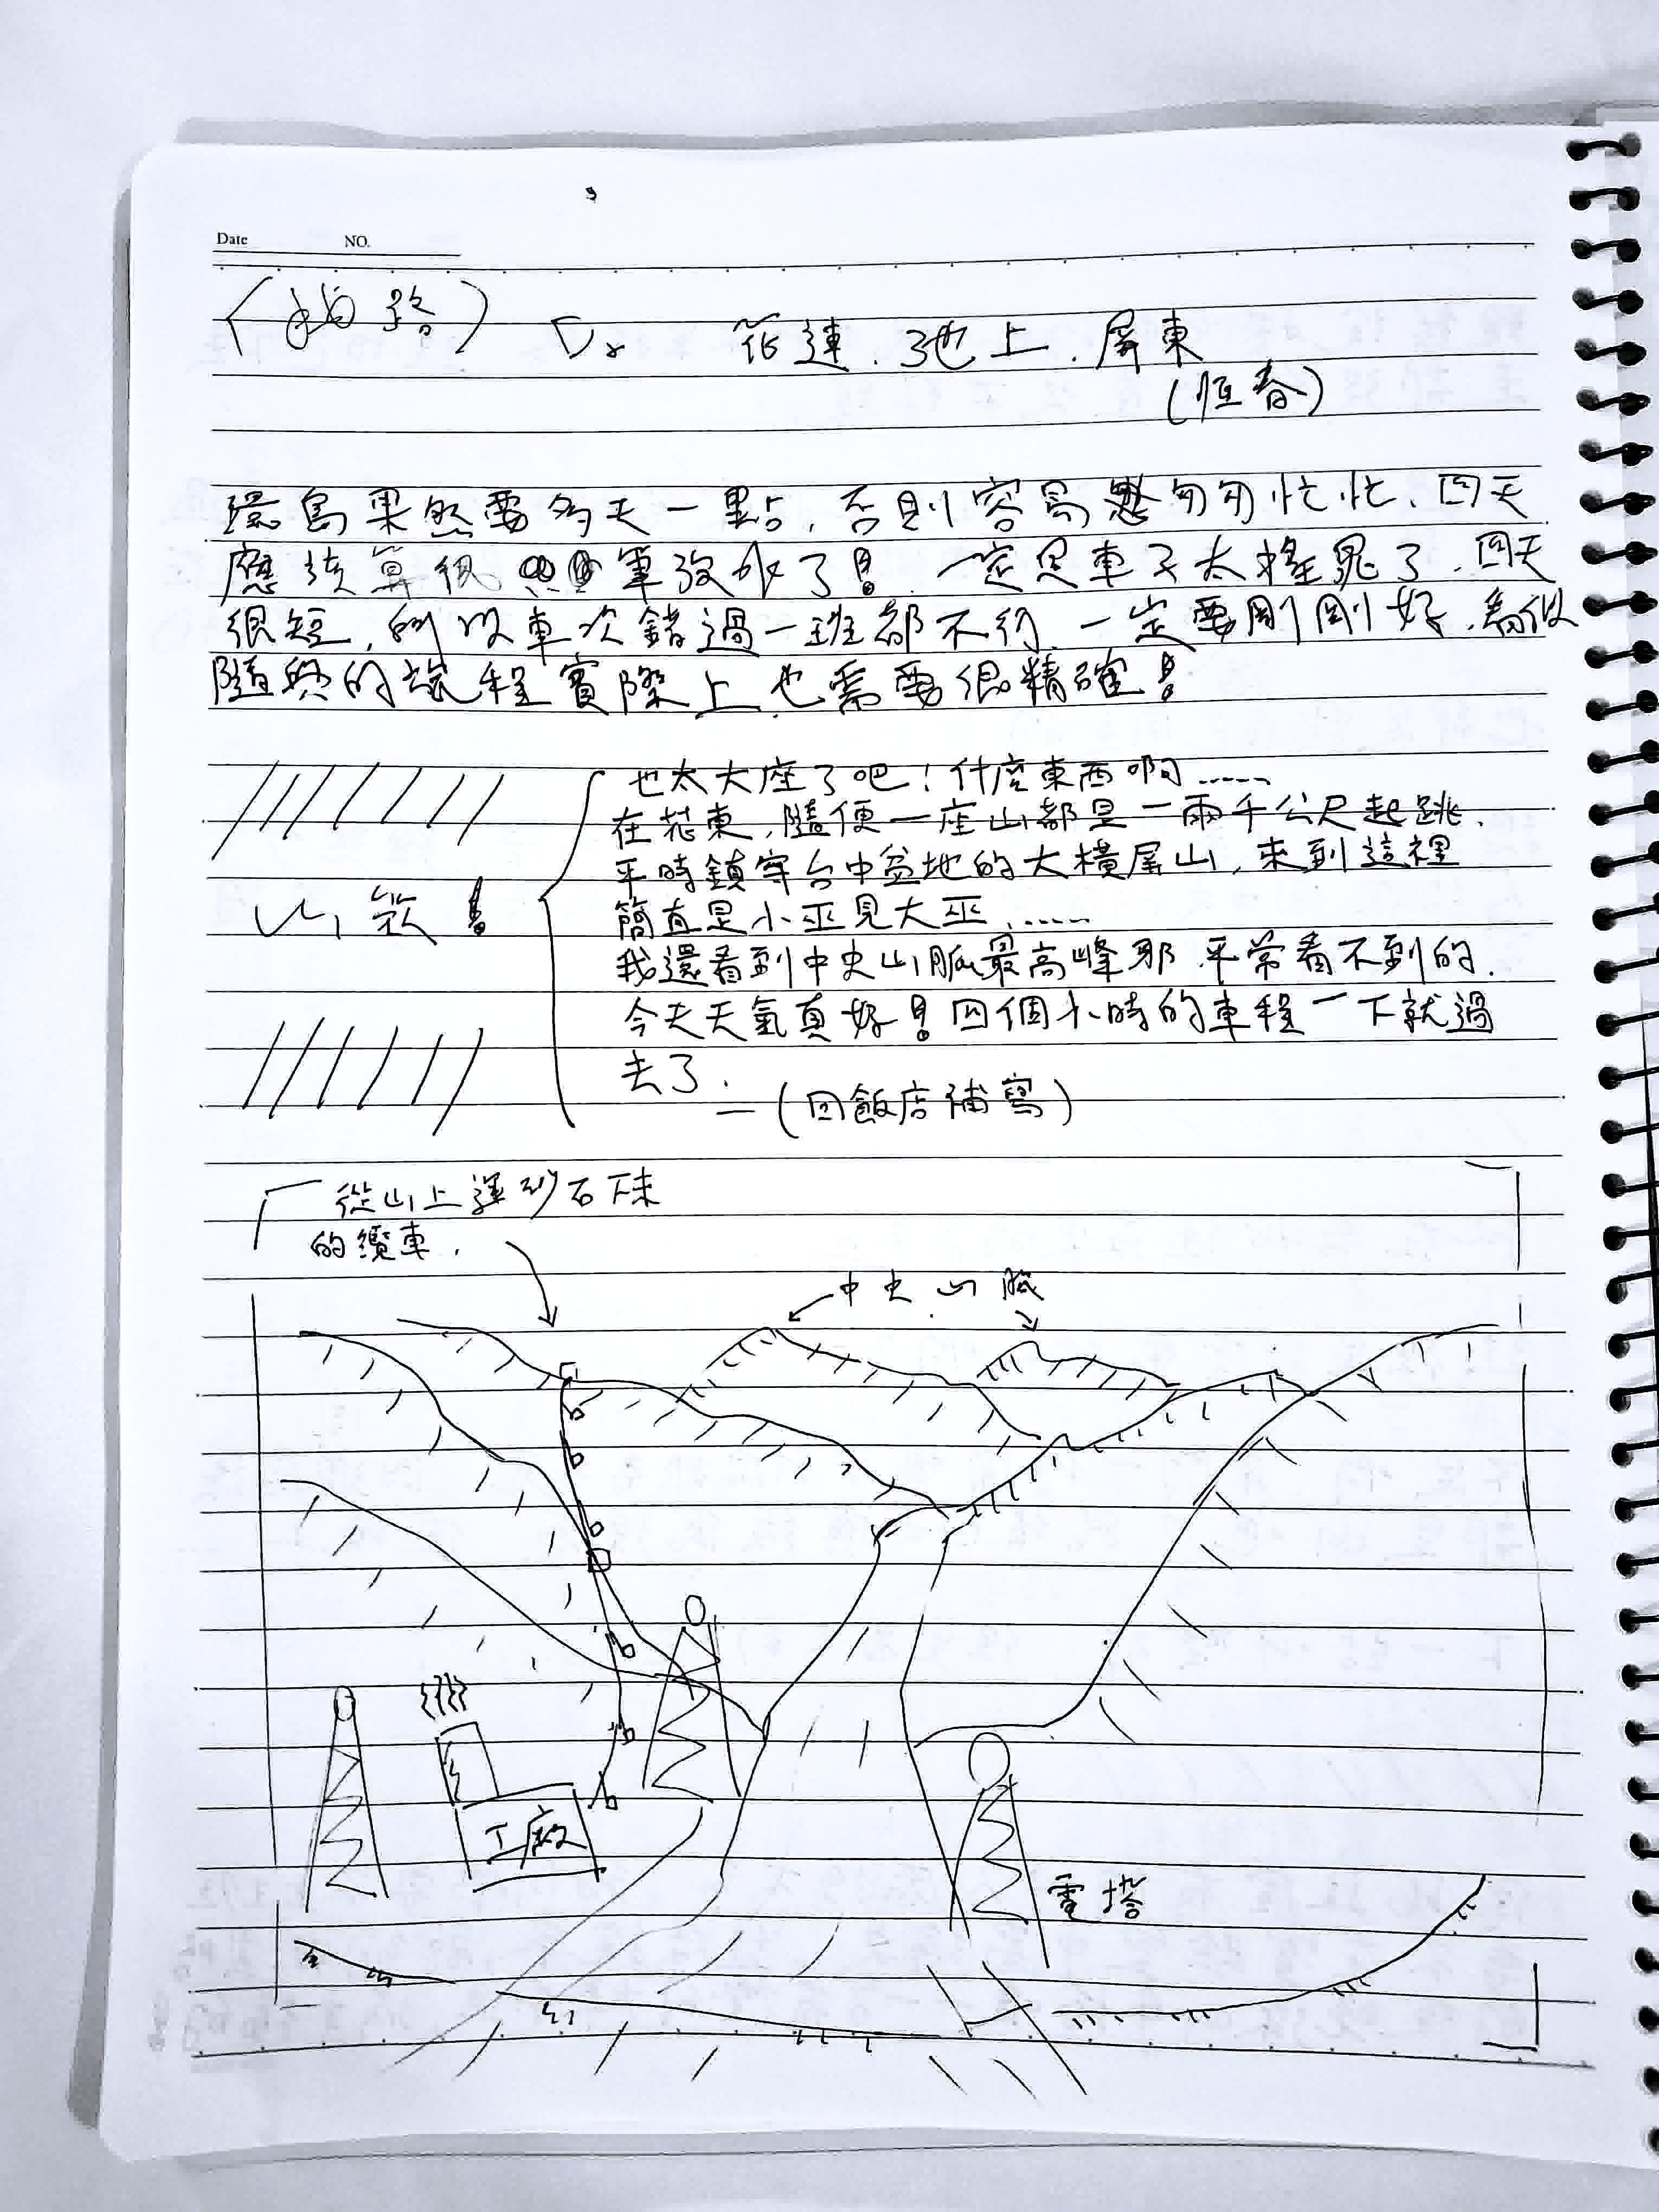 Date NO.
路 D2 花蓮．池上．屏東
(恆春)
環島果然要多天一點，否則容易匆匆忙忙、四天
應該算很 筆救水了！一定是車子太搖晃了．四天
很短，所以車次錯過一班都不行．一定要剛剛好．看似
隨興的旅程實際上也需要很精確！
也太大座了吧！什麼東西啊......
在花東，隨便一座山都是一兩千公尺起跳．
平時鎮守台中盆地的大橫屏山，來到這裡
簡直是小巫見大巫．......
山 ！
我還看到中央山脈最高峰那．平常看不到的．
今天天氣真好！四個小時的車程一下就過
去了．
—(回飯店補寫)
從山上運砂石下來
的纜車．
中央山脈
工廠
電塔